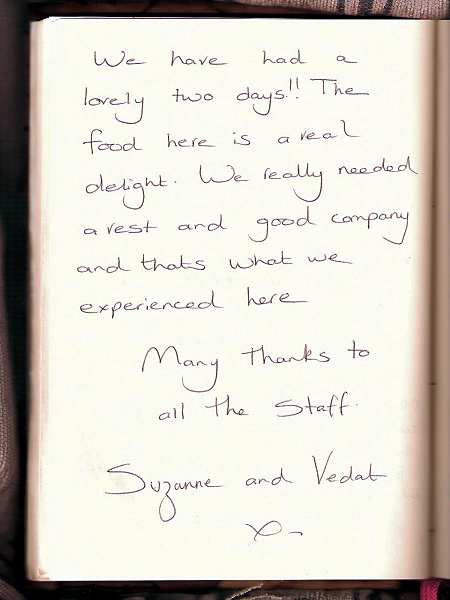 We have had a
lovely two days!! The
food here is a real
delight. We really needed
a rest and good company
and thats what we
experienced here
Many thanks to
all the Staff.
Suzanne and Vedat
x